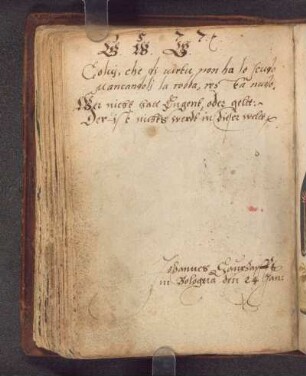 Colui, che di virtu non ha lo scudo
mancandoli la robba, resta nudo.
Wer nicht hatt Tugent, oder gelt,
Der ist nichts werdt in dieser welt.
Johannes
in Bologna den 24 Jan: